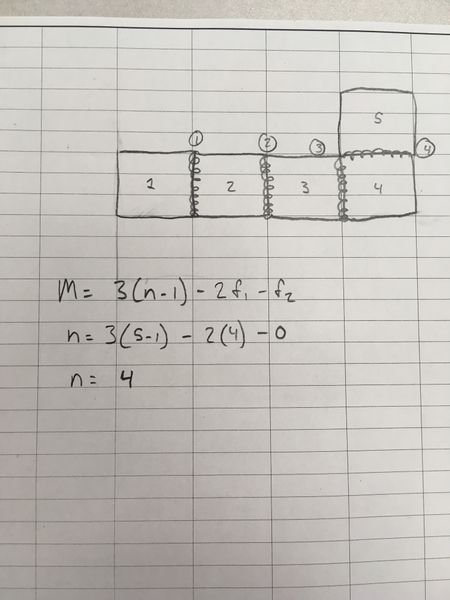 5
① ② ③ ④
1 2 3 4
M= 3(n-1) - 2f₁ - f₂
n= 3(5-1) - 2(4) - 0
n= 4